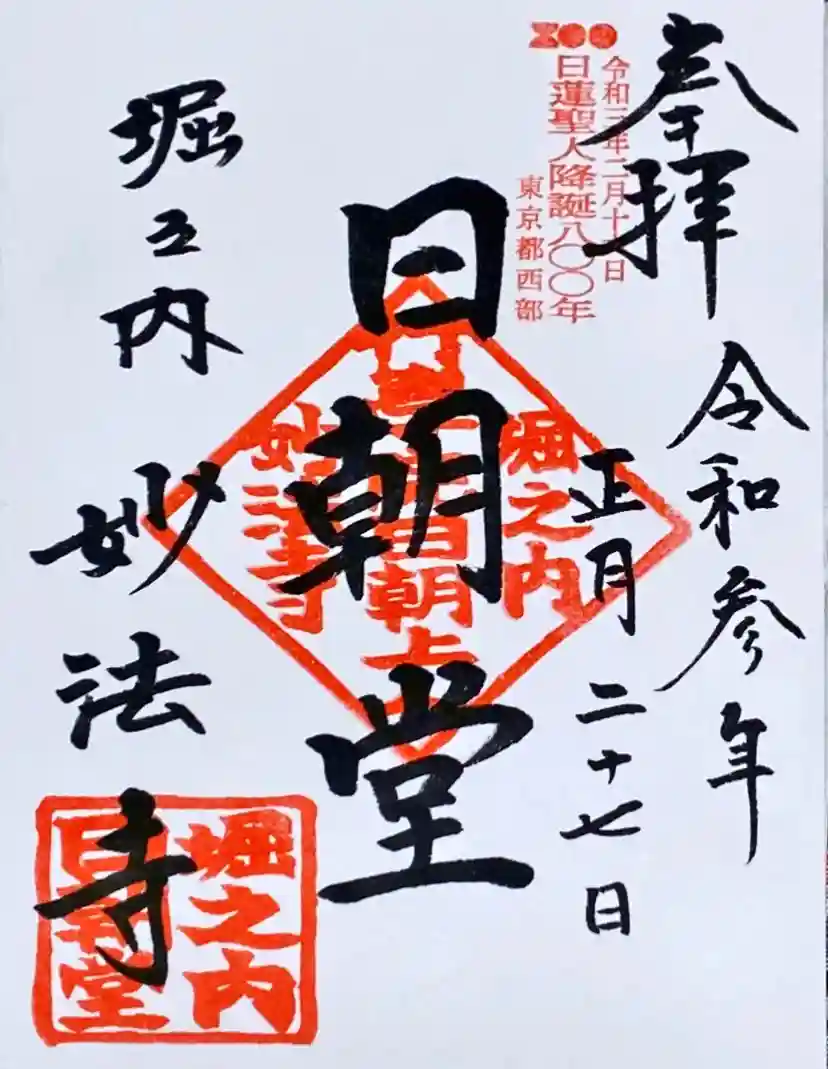 奉拝
令和参年
正月二十七日
令和三年二月十六日
日蓮聖人降誕八〇〇年
東京都西部
日朝堂
堀之内
日朝上
妙法寺
堀之内
妙法寺
堀之内
日朝堂